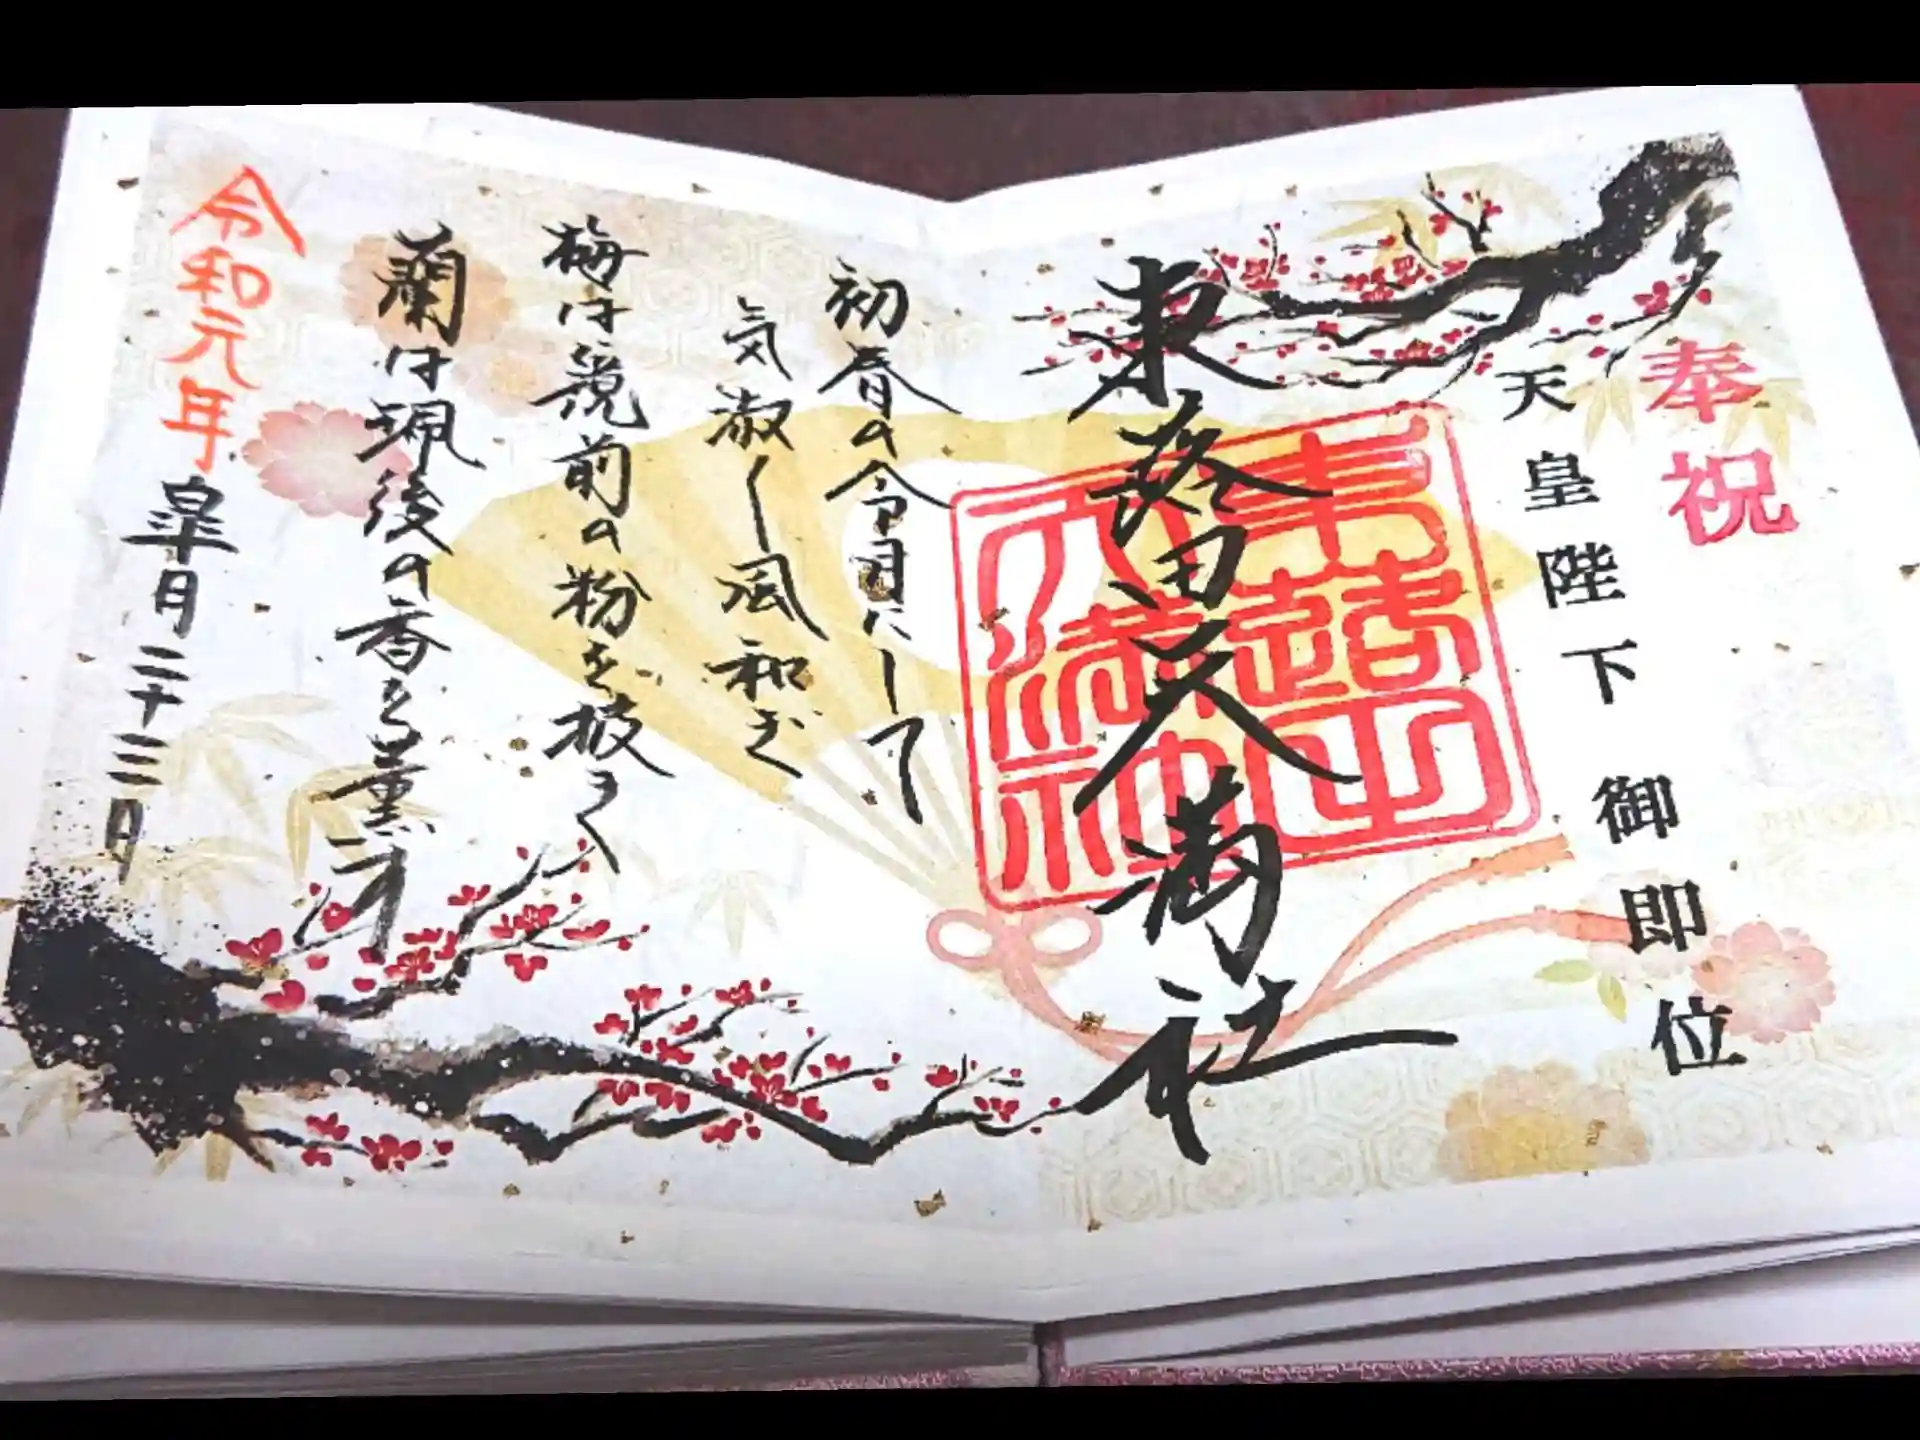 奉祝
天皇陛下御即位
東蕗田天満社
初春の令月にして
気淑く風和ぎ
梅は鏡前の粉を披く
蘭は珮後の香を薫ず
令和元年皐月二十三日